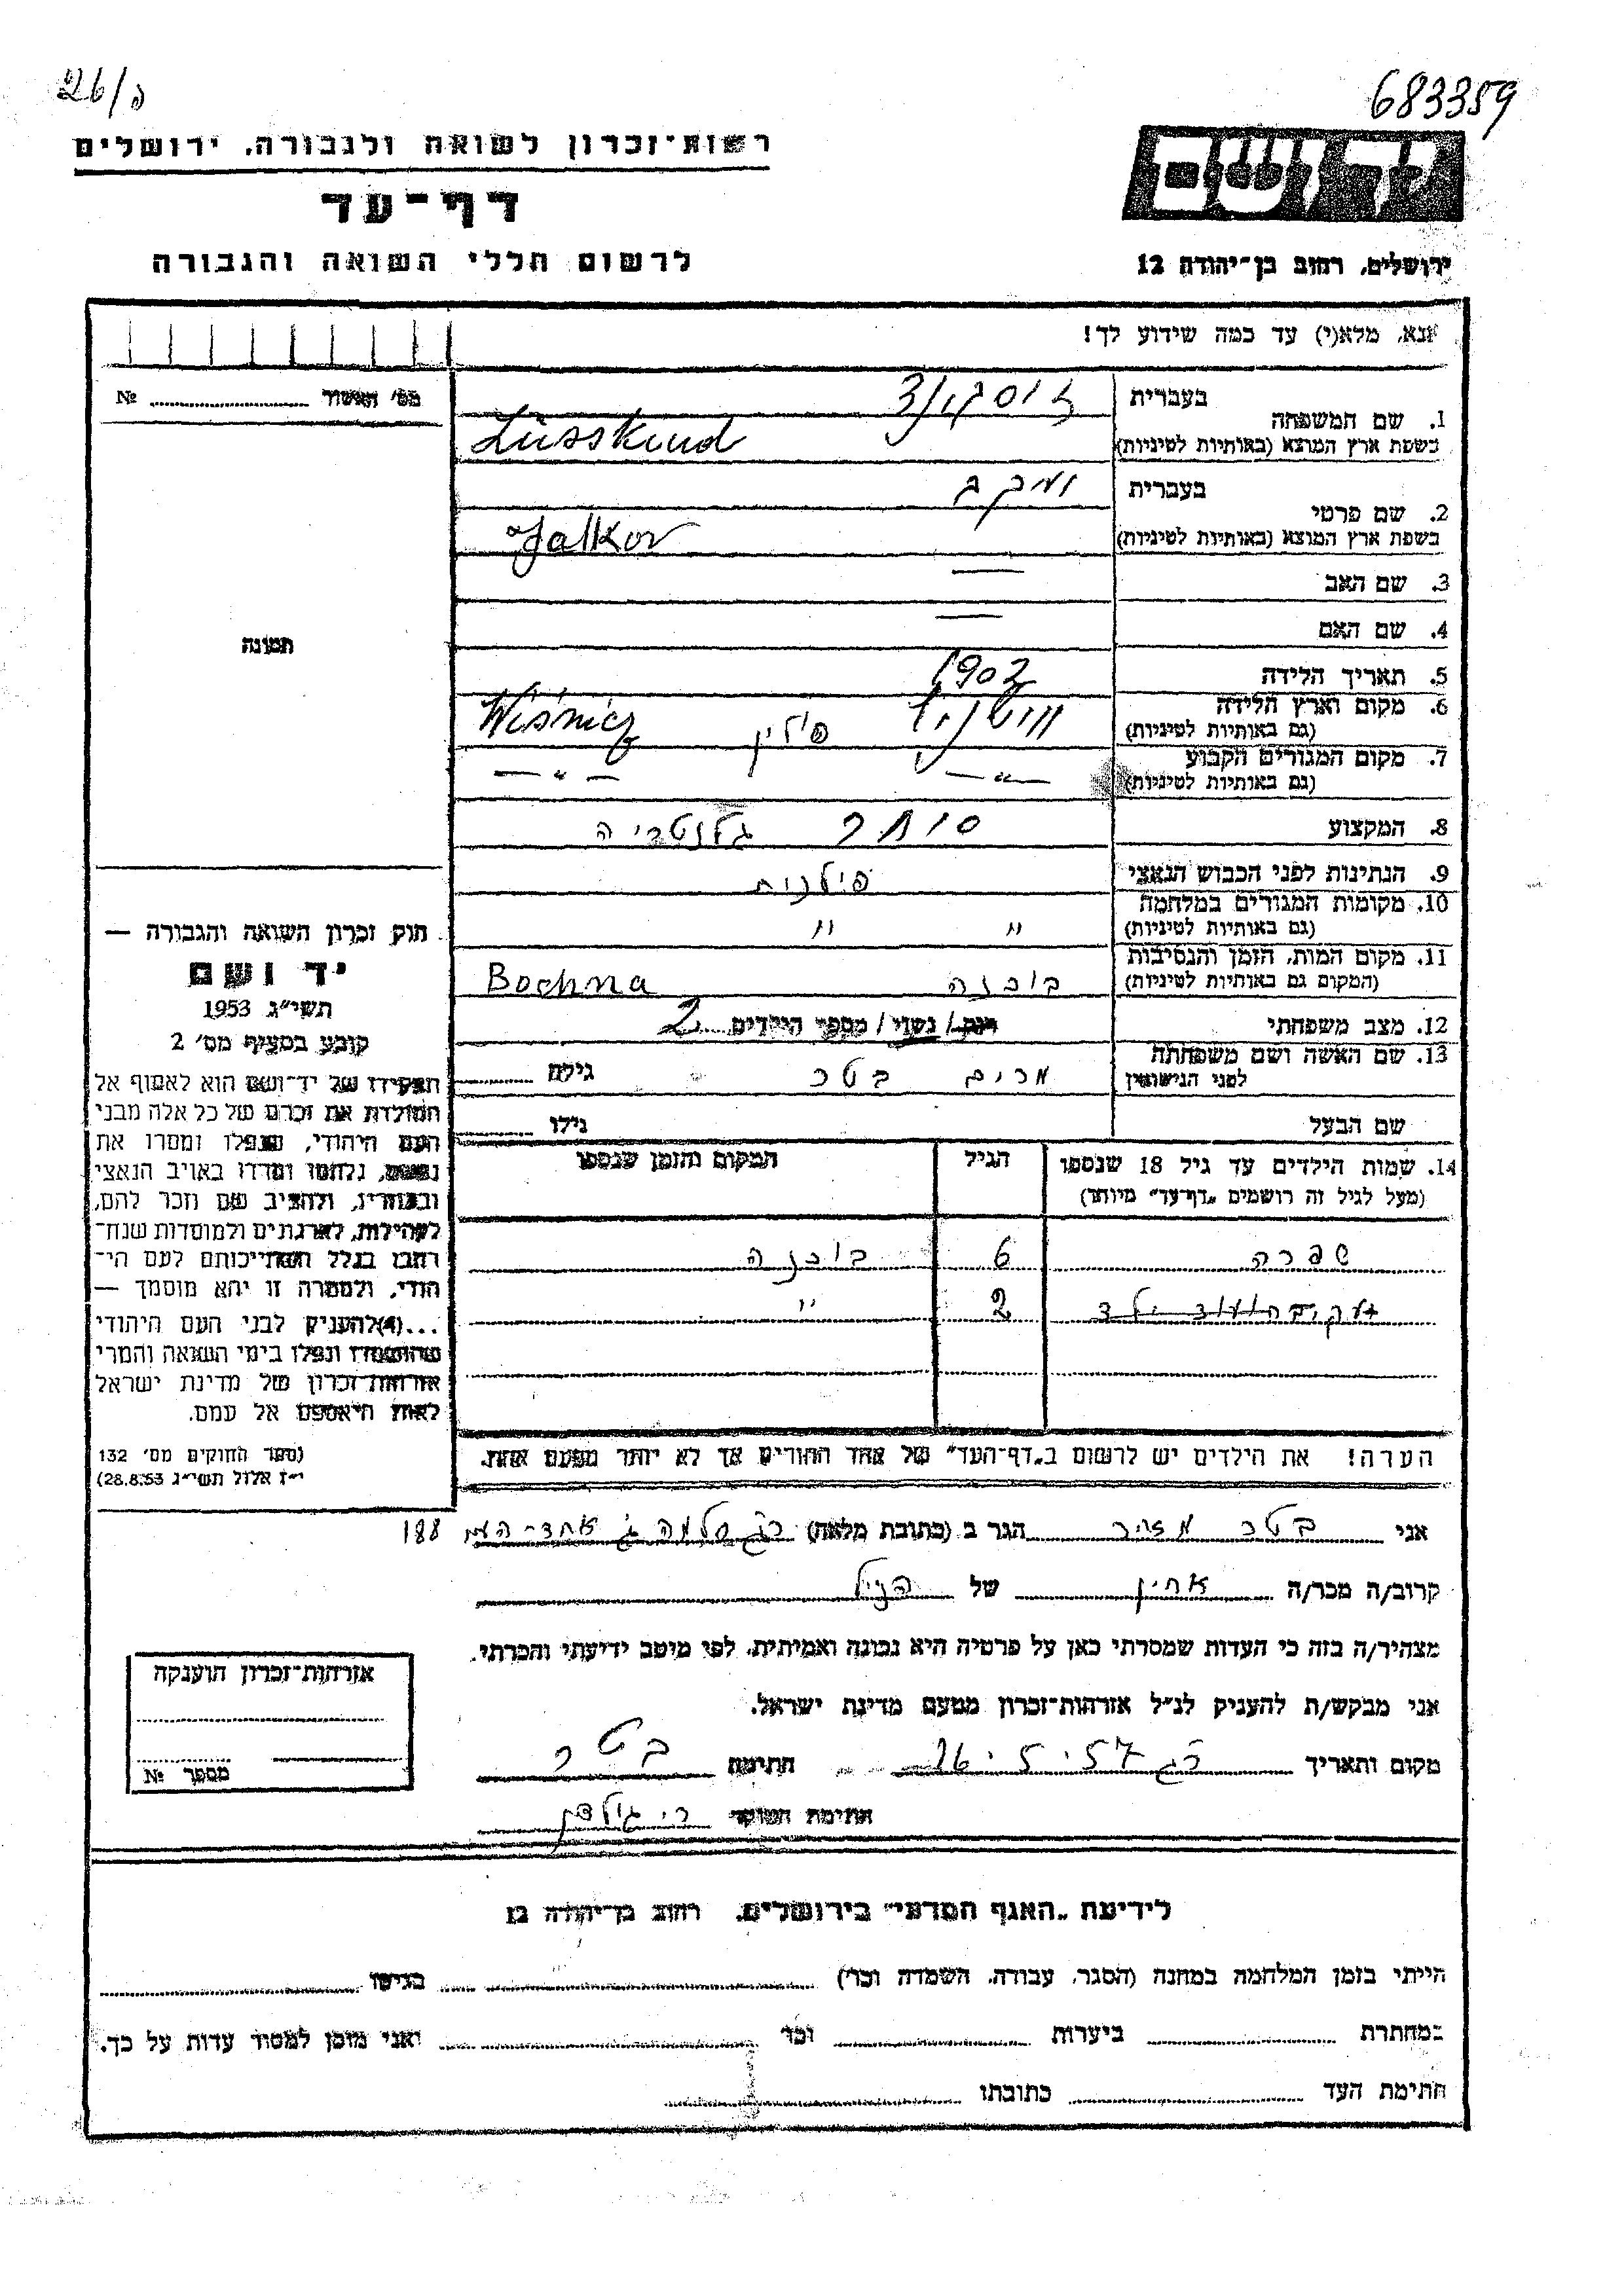 26/ה
683359
רשות־זכרון לשואה ולגבורה, ירושלים
דף־עד
לרשום חללי השואה והגבורה
יד ושם
ירושלים, רחוב בן־יהודה 12
אנא, מלא(י) עד כמה שידוע לך!
מס' האשור № 
1. שם המשפחה
בעברית זוסקינד
בשפת ארץ המוצא (באותיות לטיניות) Züsskind
2. שם פרטי
בעברית
בשפת ארץ המוצא (באותיות לטיניות)
3. שם האב —
4. שם האם —
5. תאריך הלידה 1902
6. מקום וארץ הלידה (גם באותיות לטיניות) וישניץ פולין Wiśnicz
7. מקום המגורים הקבוע (גם באותיות לטיניות) — " — — " —
8. המקצוע סוחר גלנטריה
9. הנתינות לפני הכבוש הנאצי פולנית
10. מקומות המגורים במלחמה (גם באותיות לטיניות) " "
11. מקום המות, הזמן והנסיבות (המקום גם באותיות לטיניות) בוכנה Bochna
12. מצב משפחתי רוק / נשוי / מספר הילדים 2
13. שם האשה ושם משפחתה לפני הנישואין מרים בטר גילה
שם הבעל גילו
14. שמות הילדים עד גיל 18 שנספו (מעל לגיל זה רושמים "דף־עד" מיוחד)
הגיל
המקום והזמן שנספו
שפרה 6 בוכנה
ועוד ילד 2 "
הערה! את הילדים יש לרשום ב"דף־העד" של אחד ההורים אך לא יותר מפעם אחת.
תמונה
חוק זכרון השואה והגבורה —
יד ושם
תשי"ג 1953
קובע בסעיף מס' 2
תפקידו של יד־ושם הוא לאסוף אל
המולדת את זכרם של כל אלה מבני
העם היהודי, שנפלו ומסרו את
נפשם, נלחמו ומרדו באויב הנאצי
ובעוזריו, ולהציב שם וזכר להם,
לקהילות, לארגונים ולמוסדות שנח־
רבו בגלל השתייכותם לעם הי־
הודי, ולמטרה זו יהא מוסמך —
...(4) להעניק לבני העם היהודי
שהושמדו ונפלו בימי השואה והמרי
אזרחות־זכרון של מדינת ישראל
לאות היאספם אל עמם.
(ספר החוקים מס' 132
י"ז אלול תשי"ג 28.8.53)
אני בטר הגר ב (כתובת מלאה) רג אחד־העם 188
קרוב/ה מכר/ה של הנ"ל
מצהיר/ה בזה כי העדות שמסרתי כאן על פרטיה היא נכונה ואמיתית, לפי מיטב ידיעתי והכרתי.
אני מבקש/ת להעניק לנ"ל אזרחות־זכרון מטעם מדינת ישראל.
מקום ותאריך רג 26.5.57 חתימה בטר
חתימת הפוקד
אזרחות־זכרון הוענקה
מספר №
לידיעת "האגף המדעי" בירושלים, רחוב בן־יהודה 12
הייתי בזמן המלחמה במחנה (הסגר, עבודה, השמדה וכו') בגיטו
במחתרת ביערות וכו' ואני מוכן למסור עדות על כך.
חתימת העד כתובתו